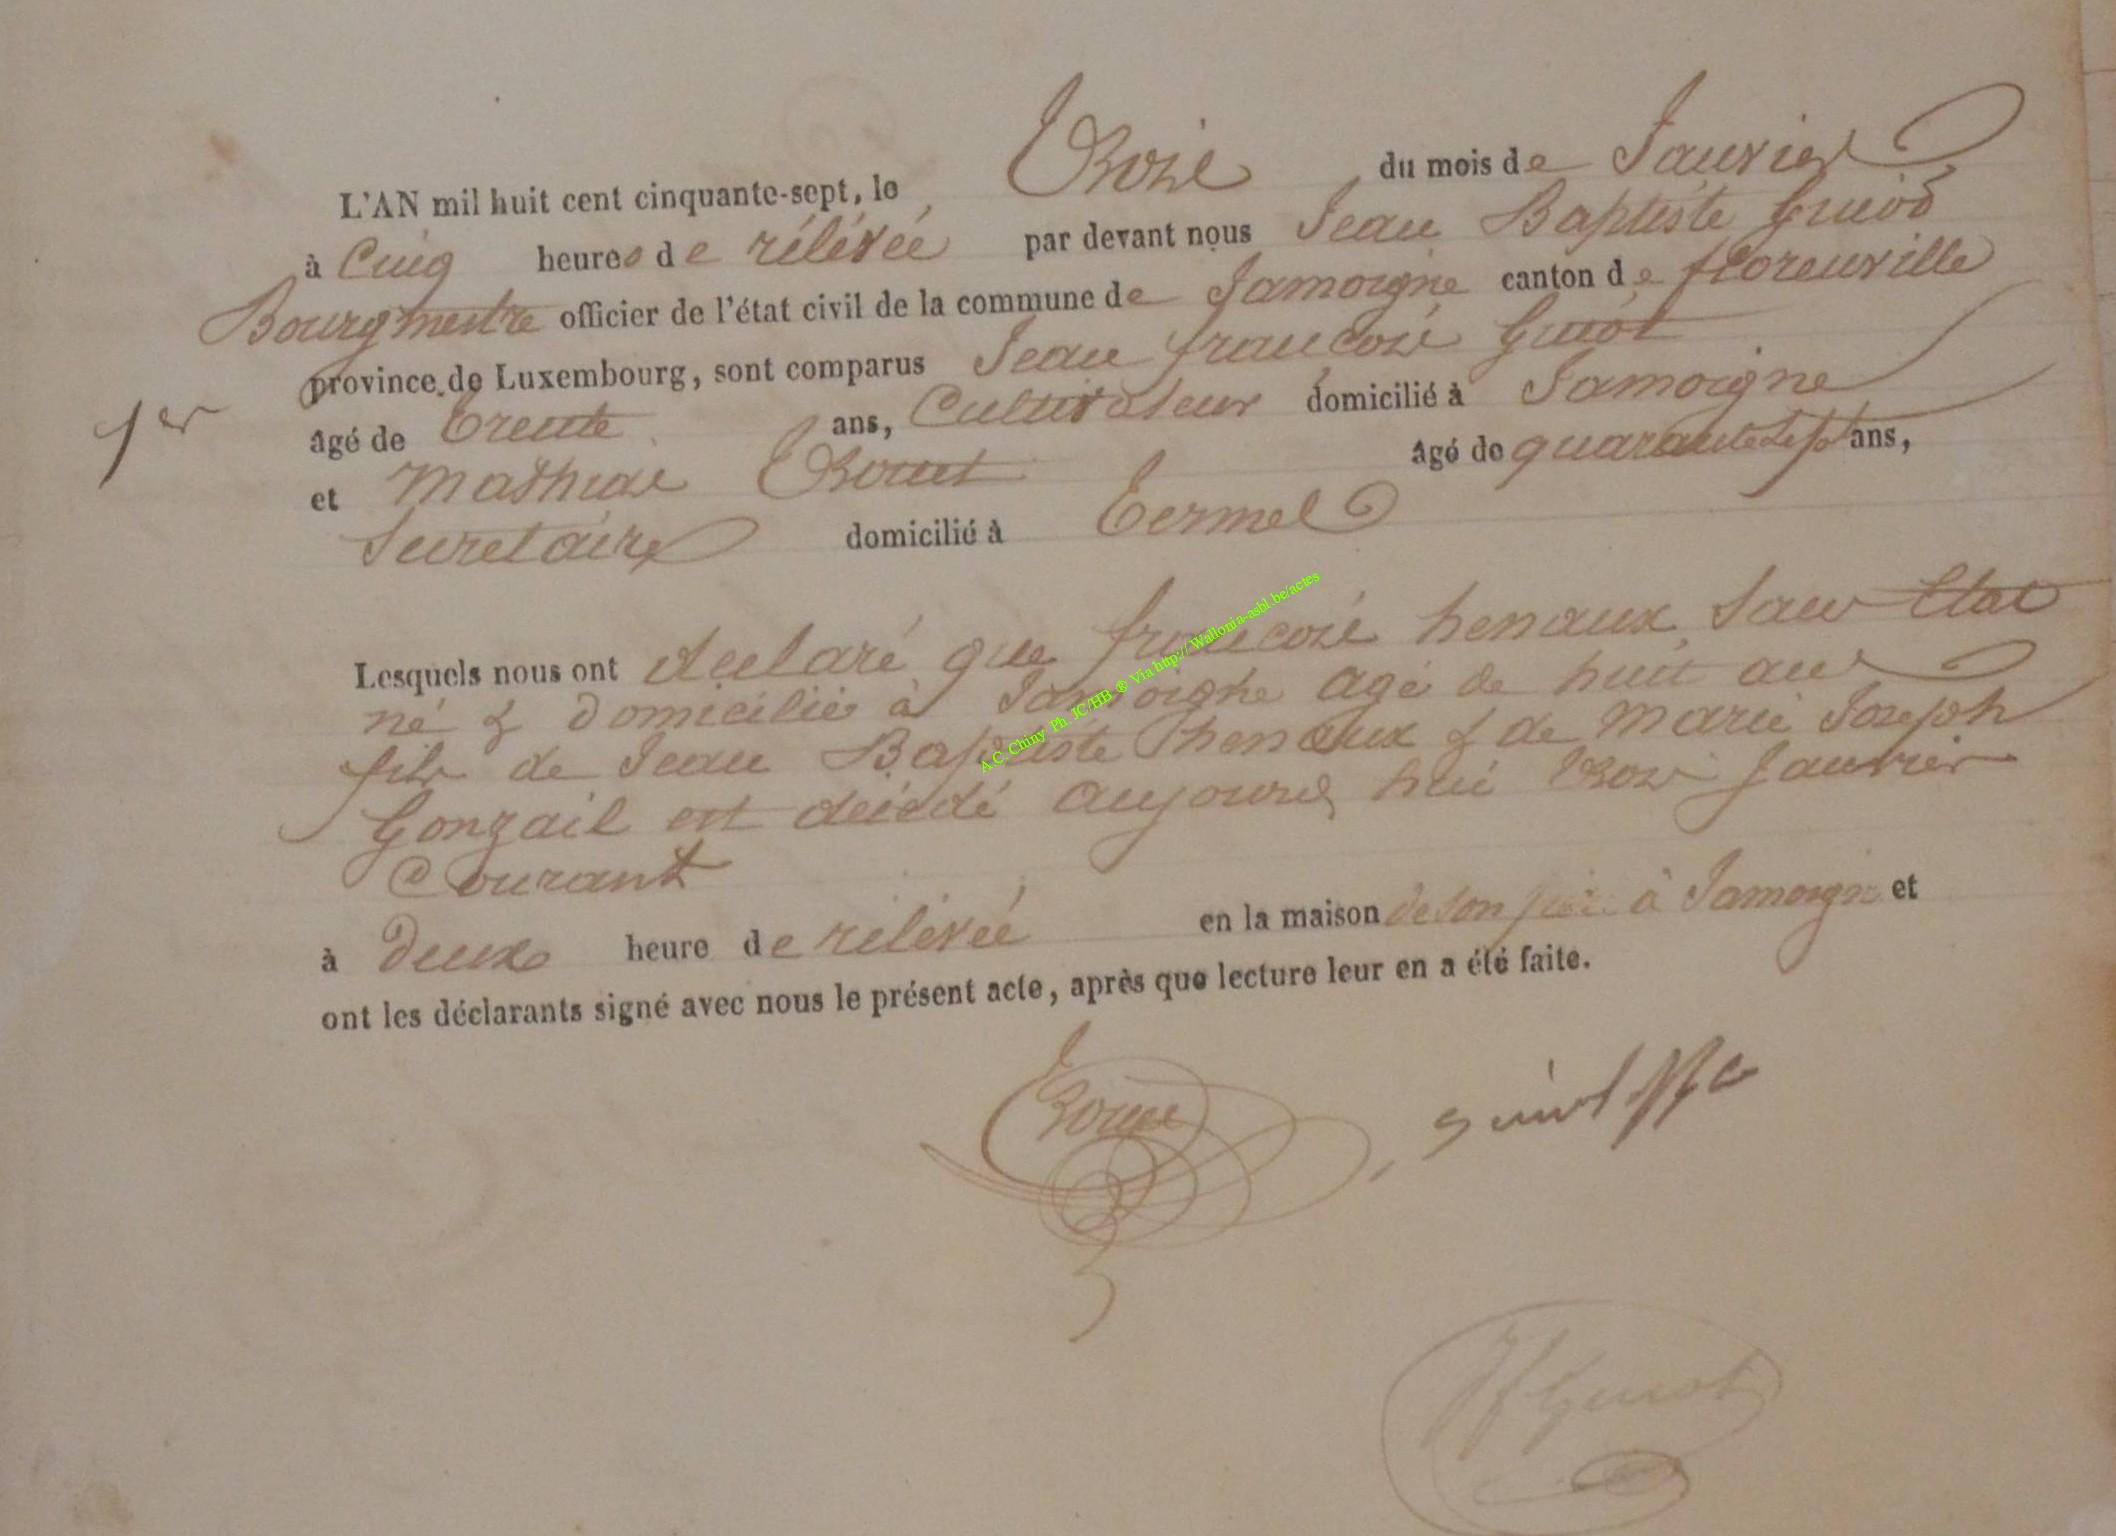 L'AN mil huit cent cinquante-sept, le Trois du mois de Janvier
à Cinq heures de rélévée par devant nous Jean Baptiste Guiot
Bourgmestre officier de l'état civil de la commune de Jamoigne canton de florenville
province de Luxembourg, sont comparus Jean françois Guiot
1er
âgé de trente ans, Cultivateur domicilié à Jamoigne
et Mathias âgé de quarante sept ans,
Secretaire domicilié à Termel
Lesquels nous ont déclaré que françois henaux sans Etat
né & domicilié à Jamoigne agé de huit ans
fils de Jean Baptiste henaux & de Marie Joseph
Gonzail est décédé aujourd'hui trois Janvier
Courant
à deux heure de rélévée en la maison de son père à Jamoigne et
ont les déclarants signé avec nous le présent acte, après que lecture leur en a été faite.
A.C. Chiny Ph. JC/HB ® Via http://Wallonia-asbl.be/actes
JfGuiot